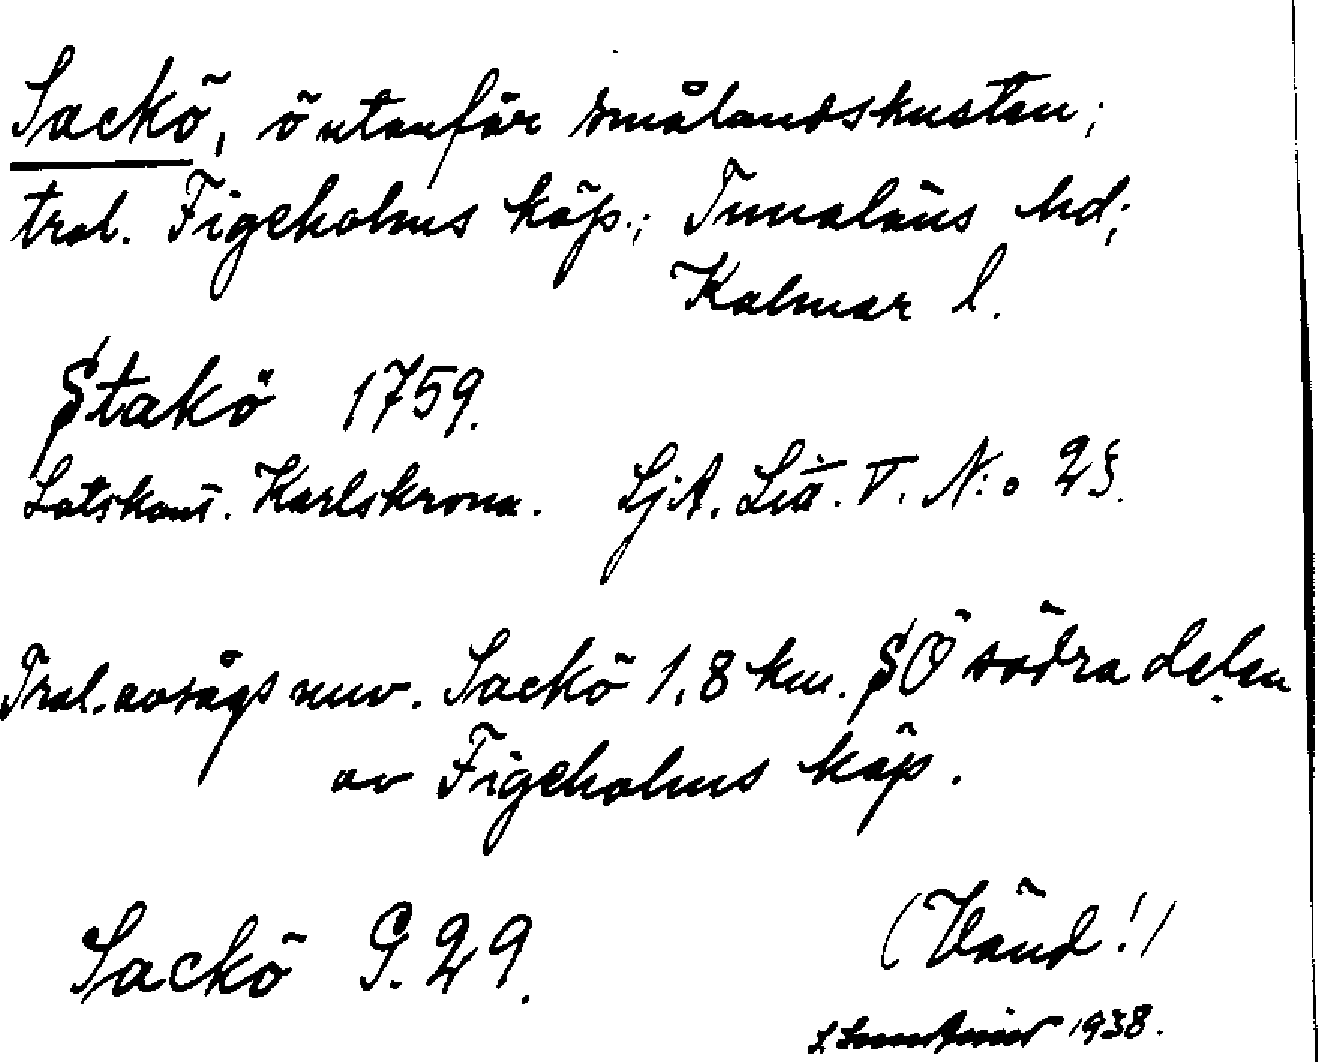 Sackö, ö utanför smålandskusten;
trol. Figeholms köp.; Tunaläns hd;
Kalmar l.
Stakö 1759.
Lotskont. Karlskrona. SjA. Litt. V. N:o 23.
Trol. avsågs nuv. Sackö 1,8 km. SÖ södra delen
av Figeholms köp.
Sackö G. 29.
(Vänd!)
1938.